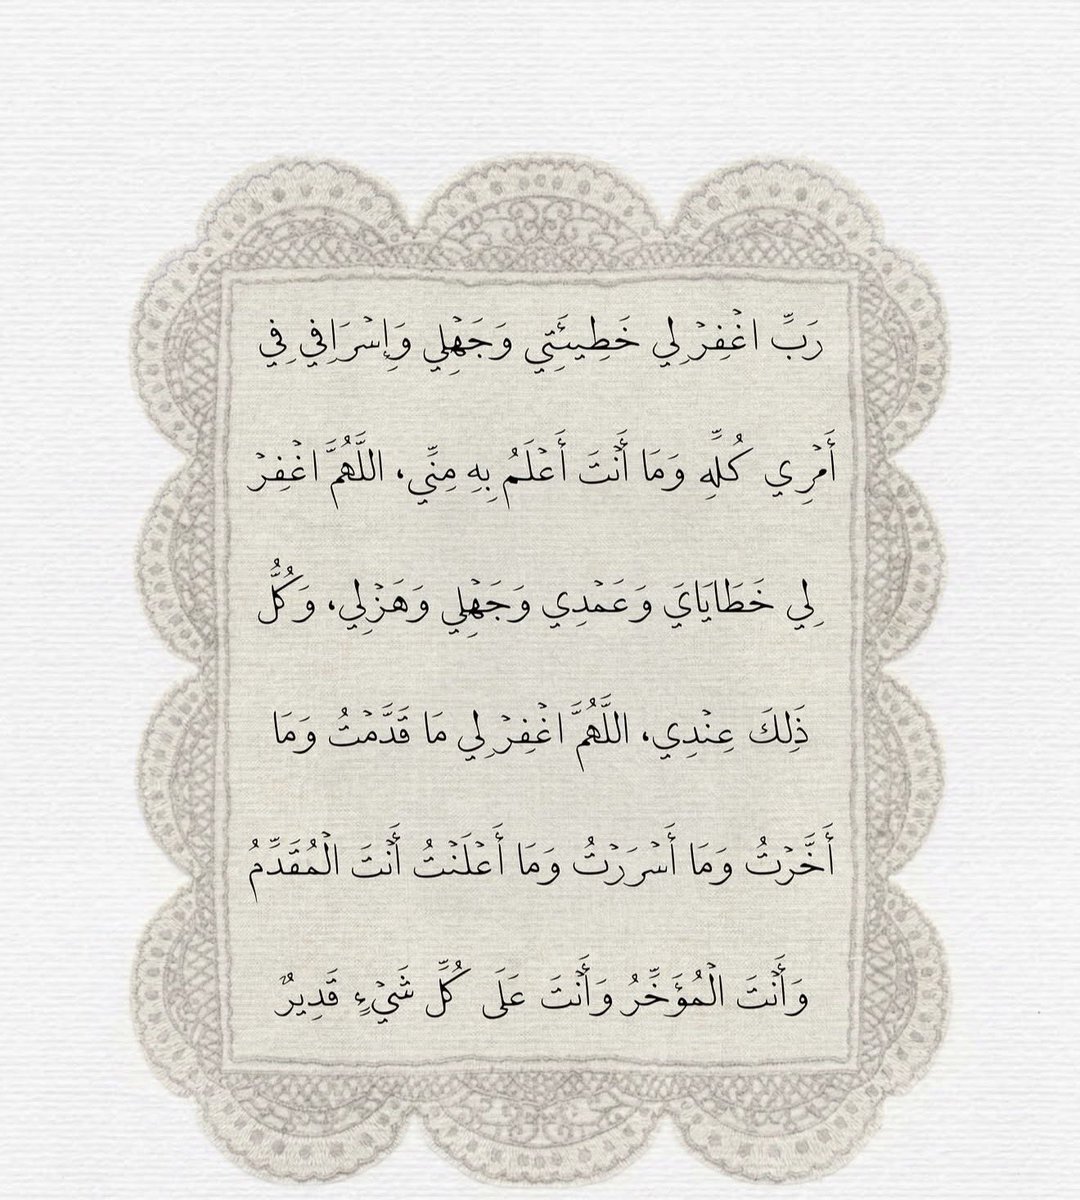 رَبِّ اغْفِرْ لِي خَطِيئَتِي وَجَهْلِي وَإِسْرَافِي فِي
أَمْرِي كُلِّهِ وَمَا أَنْتَ أَعْلَمُ بِهِ مِنِّي، اللَّهُمَّ اغْفِرْ
لِي خَطَايَايَ وَعَمْدِي وَجَهْلِي وَهَزْلِي، وَكُلُّ
ذَلِكَ عِنْدِي، اللَّهُمَّ اغْفِرْ لِي مَا قَدَّمْتُ وَمَا
أَخَّرْتُ وَمَا أَسْرَرْتُ وَمَا أَعْلَنْتُ أَنْتَ الْمُقَدِّمُ
وَأَنْتَ الْمُؤَخِّرُ وَأَنْتَ عَلَى كُلِّ شَيْءٍ قَدِيرٌ